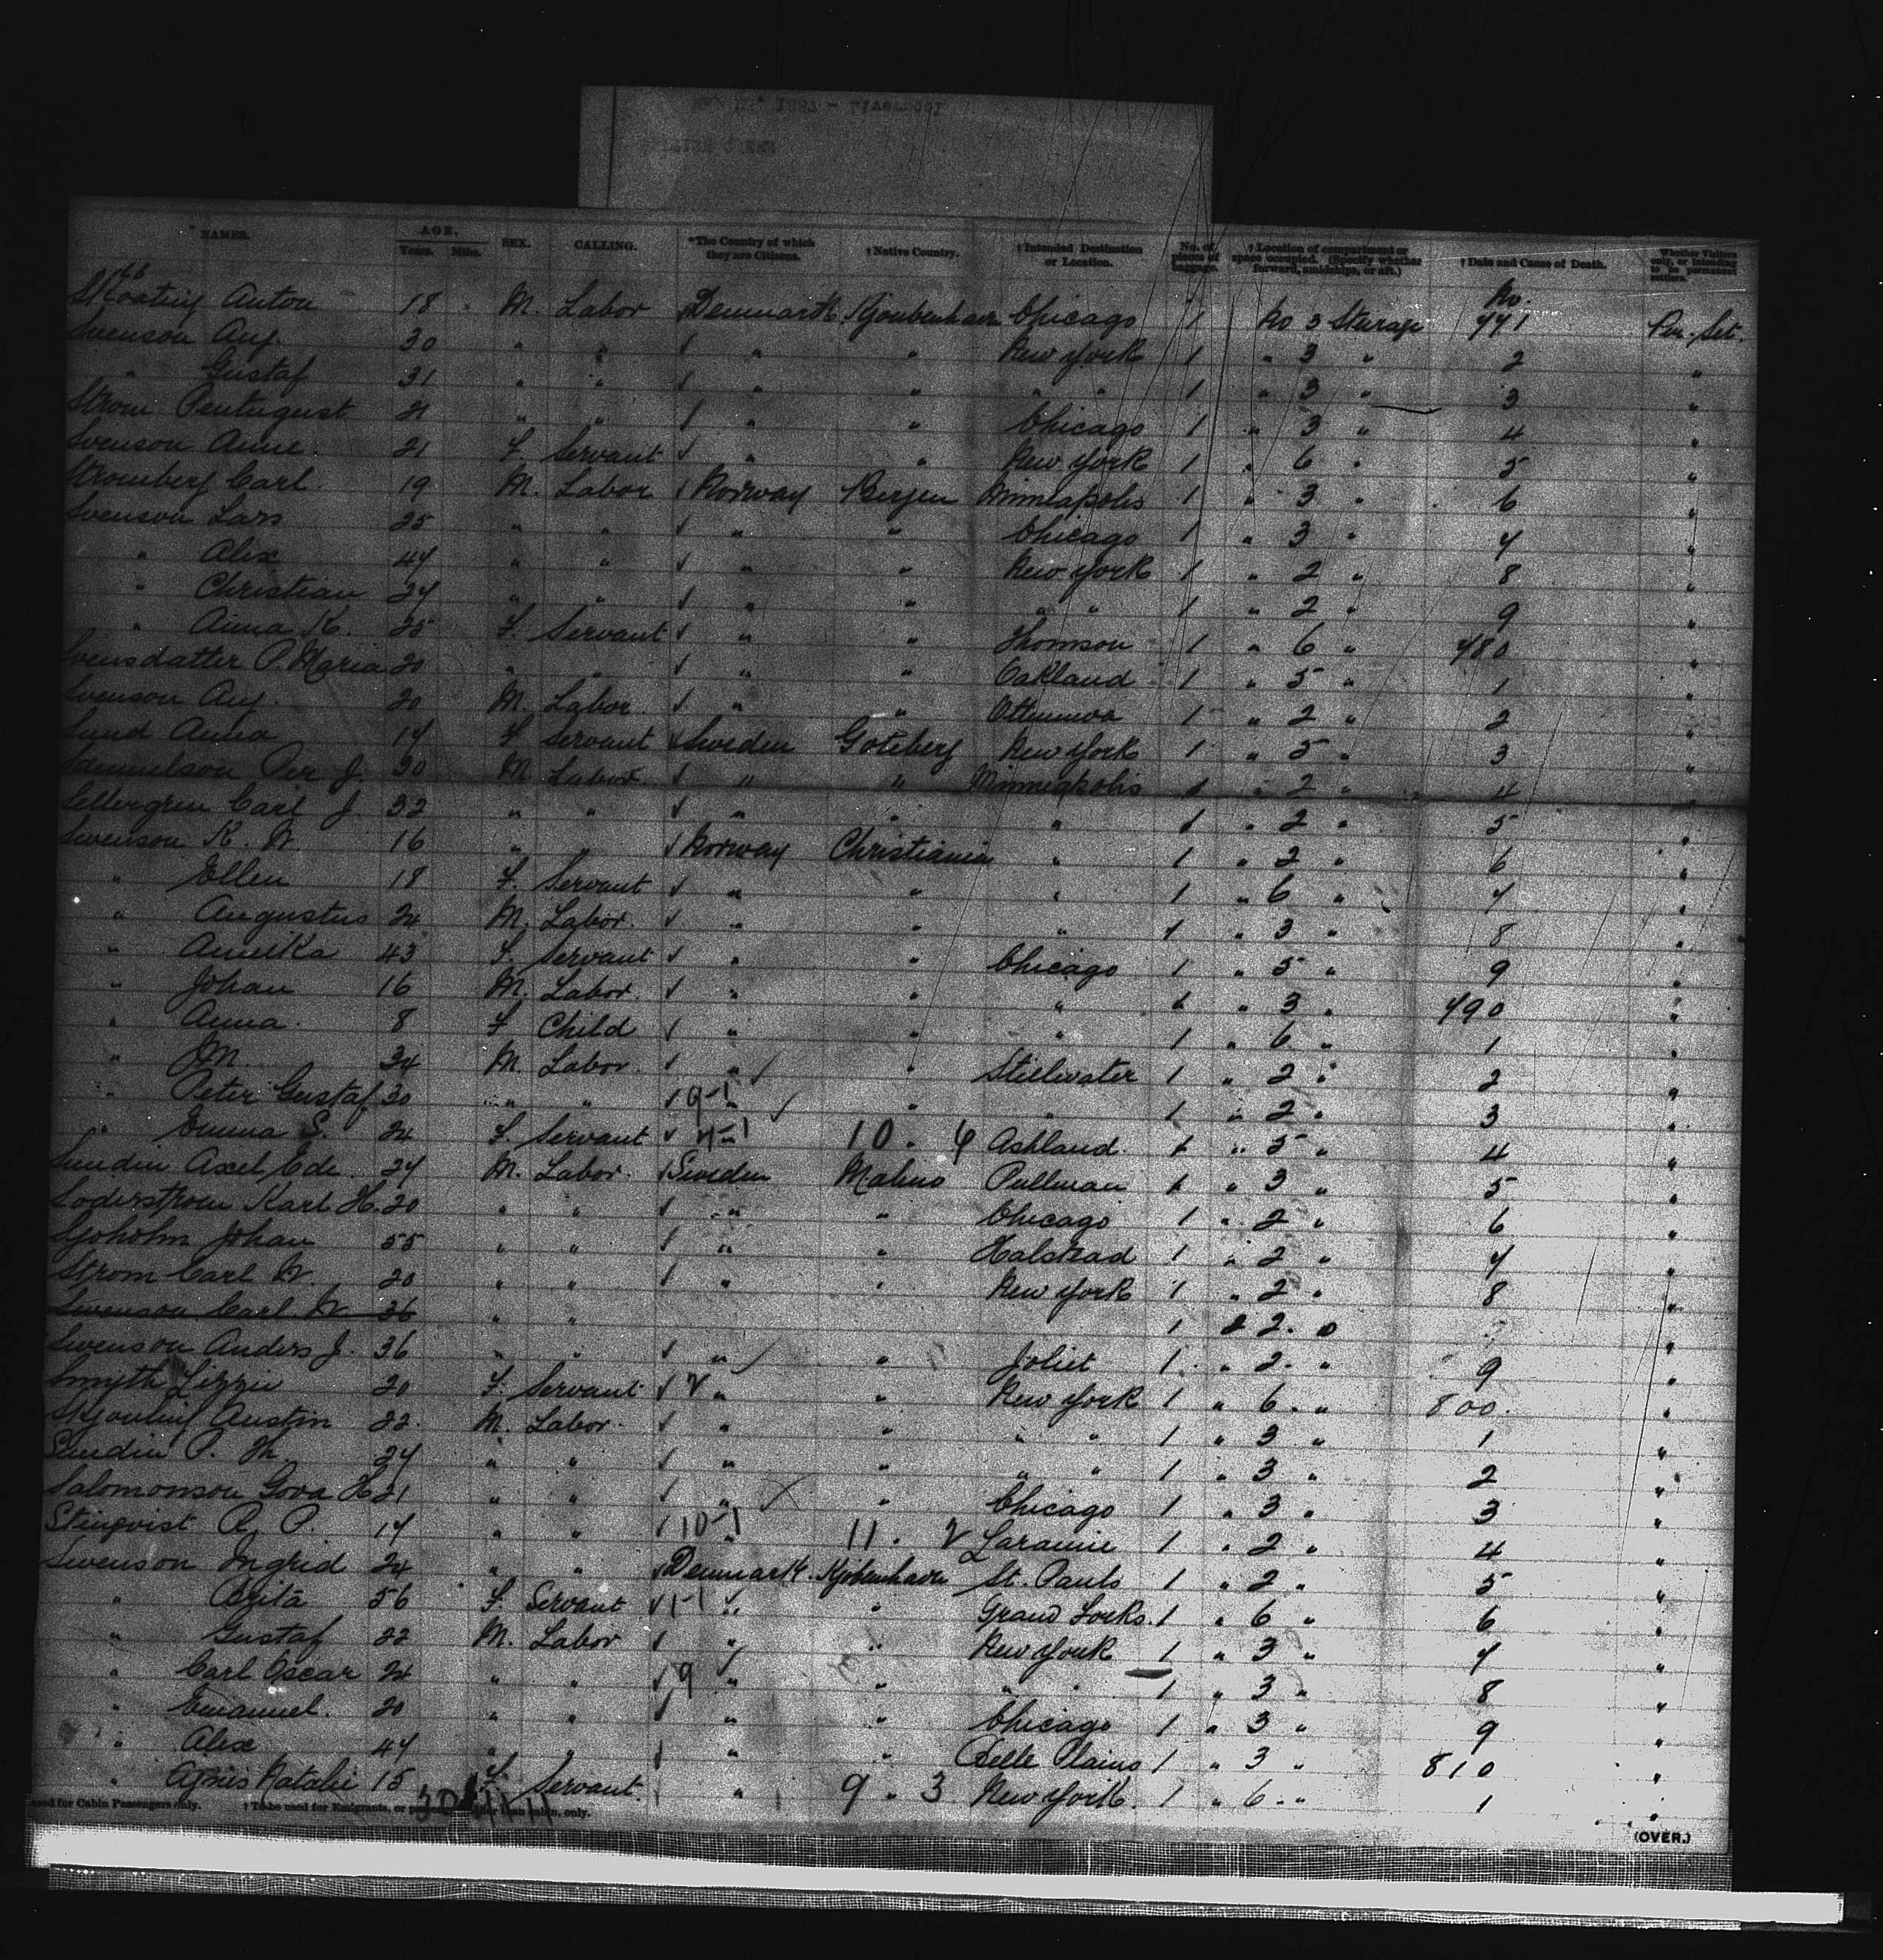 NAMES. AGE. Years. Mths. SEX. CALLING. *The Country of which they are Citizens. †Native Country. †Intended Destination or Location. No. of pieces of baggage. †Location of compartment or space occupied. (Specify whether forward, amidships, or aft.) †Date and Cause of Death. Whether Visitors only, or intending to be permanent settlers.
No.
Anton 18 M. Labor Denmark Chicago 1 No 3 Sterage 771 Per. Set.
Svenson Aug. 30 " " " " New York 1 " 3 " 2 "
" Gustaf 31 " " " " " " 1 " 3 " 3 "
Strom 21 " " " " Chicago 1 " 3 " 4 "
Svenson Anne 21 F. Servant " " New York 1 " 6 " 5 "
Stromberg Carl. 19 M. Labor Norway Bergen Minneapolis 1 " 3 " 6 "
Svenson Lars 25 " " " " Chicago 1 " 3 " 7 "
" Alex 47 " " " " New York 1 " 2 " 8 "
" Christian 27 " " " " " " 1 " 2 " 9 "
" Anna K. 25 F. Servant " " Thomson 1 " 6 " 780 "
Svensdatter P. Maria 20 " " " " Oakland 1 " 5 " 1 "
Svenson Aug. 20 M. Labor " " Ottumwa 1 " 2 " 2 "
Lund Anna 17 F Servant Sweden Goteberg New York 1 " 5 " 3 "
Samuelson Per J. 30 M. Labor " " Minneapolis 1 " 2 " 4 "
Sellergren Carl J. 32 " " " " " 1 " 2 " 5 "
Swenson K. W. 16 " " Norway Christiania " 1 " 2 " 6 "
" Ellen 18 F. Servant " " " 1 " 6 " 7 "
" Augustus 24 M. Labor. " " " 1 " 3 " 8 "
" Annika 43 F. Servant " " Chicago 1 " 5 " 9 "
" Johan 16 M. Labor. " " " 1 " 3 " 790 "
" Anna. 8 F Child " " " 1 " 6 " 1 "
" M. 34 M. Labor. " " Stillwater 1 " 2 " 2 "
" Peter Gustaf 30 " " 9-1 " " " 1 " 2 " 3 "
" Emma S. 24 F. Servant " 10 " 4 Ashland 1 " 5 " 4 "
Sundin Axel Ede 27 M. Labor. Sweden Malmo Pullman 1 " 3 " 5 "
Soderstrom Karl H. 20 " " " " Chicago 1 " 2 " 6 "
Sjoholm Johan 55 " " " " Halstead 1 " 2 " 7 "
Strom Carl W. 20 " " " " New York 1 " 2 " 8 "
Swenson Carl W 36 " " 1 " 2 " "
Swenson Anders J. 36 " " " " Joliet 1 " 2 " 9 "
Smyth Lizzie 20 F. Servant " " New York 1 " 6 " 800 "
Austin 22. M. Labor. " " " " 1 " 3 " 1 "
Sundin P. M. 27 " " " " " " 1 " 3 " 2 "
Salomonson H 21 " " " " Chicago 1 " 3 " 3 "
Stenqvist 17 " " 10-1 " 11 " 2 Laramie 1 " 2 " 4 "
Swenson Ingrid 24 " " Denmark. Kjobenhavn St. Pauls 1 " 2 " 5 "
" Brita 56 F. Servant 1-1 " " Grand Forks. 1 " 6 " 6 "
" Gustaf 22 M. Labor " " New York 1 " 3 " 7 "
" Carl Oscar 24 " " 9 " " " " 1 " 3 " 8 "
" Emanuel. 20 " " " " Chicago 1 " 3 " 9 "
" Alex 47 " " " " Belle Plains 1 " 3 " 810 "
" Agnes Natalie 15 F Servant. " 9 " 3 New York. 1 " 6 " 1 "
used for Cabin Passengers only. † To be used for Emigrants, or other than cabin, only.
(OVER.)